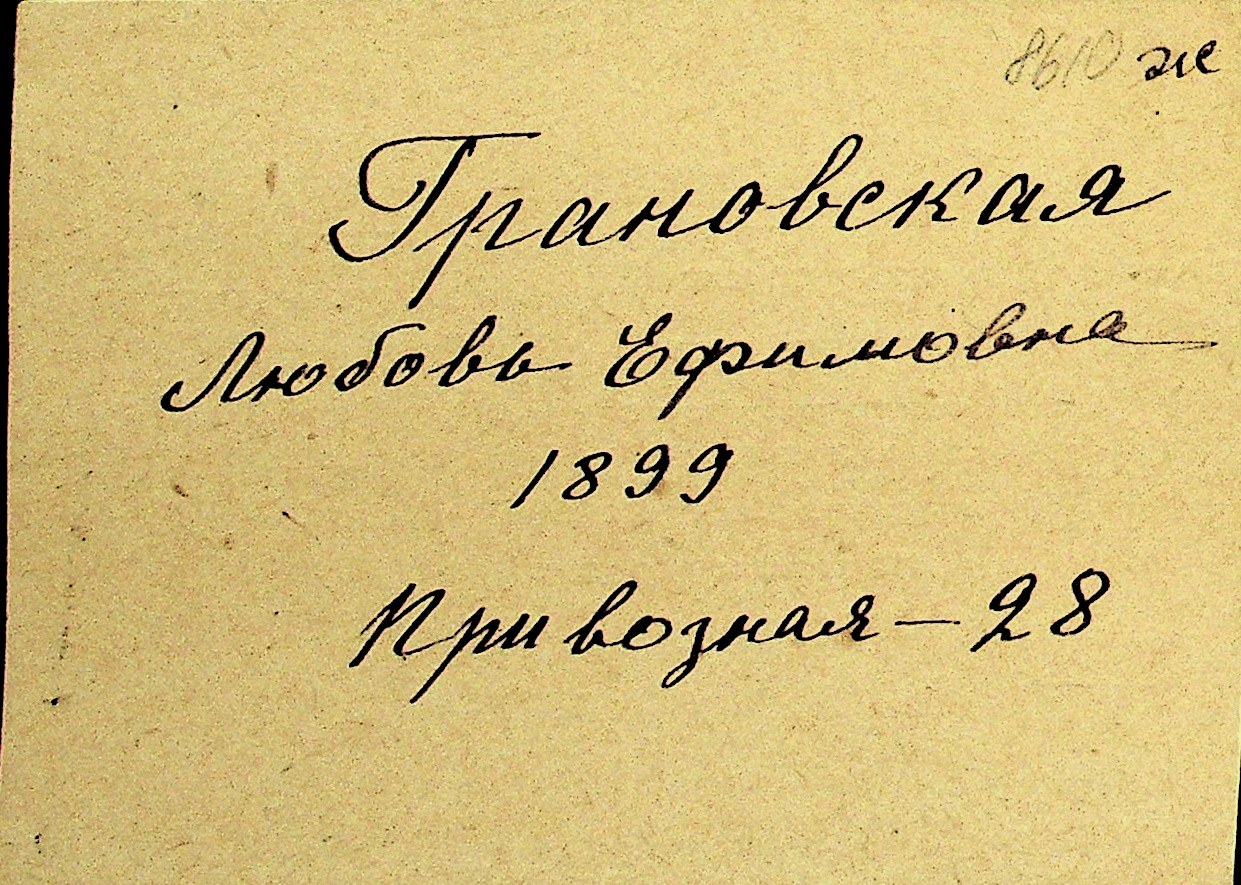 8610 ж
Грановская
Любовь Ефимовна
1899
Привозная - 28